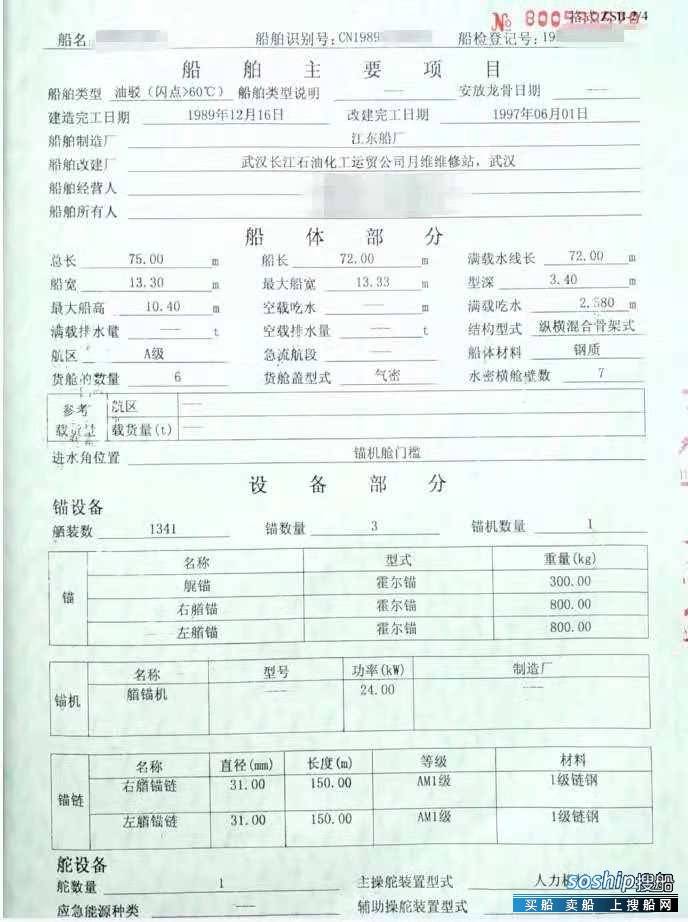 № 8005 格式 ZSJ-2/4
船名 船舶识别号: CN1989 船检登记号: 19
船 舶 主 要 项 目
船舶类型 油驳（闪点>60℃） 船舶类型说明 —— 安放龙骨日期 ——
建造完工日期 1989年12月16日 改建完工日期 1997年06月01日
船舶制造厂 江东船厂
船舶改建厂 武汉长江石油化工运贸公司月维维修站，武汉
船舶经营人
船舶所有人
船 体 部 分
总长 75.00 m 船长 72.00 m 满载水线长 72.00 m
船宽 13.30 m 最大船宽 13.33 m 型深 3.40 m
最大船高 10.40 m 空载吃水 —— m 满载吃水 2.580 m
满载排水量 —— t 空载排水量 —— t 结构型式 纵横混合骨架式
航区 A级 急流航段 —— 船体材料 钢质
货舱的数量 6 货舱盖型式 气密 水密横舱壁数 7
参考 航区 ——
载货量 载货量(t) ——
进水角位置 锚机舱门槛
设 备 部 分
锚设备
舾装数 1341 锚数量 3 锚机数量 1
锚 名称 型式 重量(kg)
艉锚 霍尔锚 300.00
右艏锚 霍尔锚 800.00
左艏锚 霍尔锚 800.00
锚机 名称 型号 功率(kW) 制造厂
艏锚机 —— 24.00 ——
锚链 名称 直径(mm) 长度(m) 等级 材料
右艏锚链 31.00 150.00 AM1级 1级链钢
左艏锚链 31.00 150.00 AM1级 1级链钢
舵设备
舵数量 1 主操舵装置型式 人力
应急能源种类 —— 辅助操舵装置型式
soship搜船
买船 卖船 上搜船网